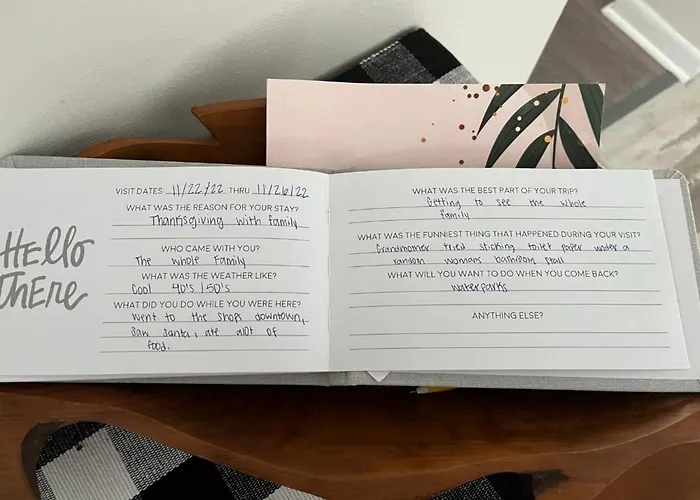 HEllo
ThEre
VISIT DATES 11/22/22 THRU 11/26/22
WHAT WAS THE REASON FOR YOUR STAY?
Thanksgiving with family
WHO CAME WITH YOU?
The whole Family
WHAT WAS THE WEATHER LIKE?
Cool 40's / 50's
WHAT DID YOU DO WHILE YOU WERE HERE?
Went to the shops downtown,
Saw Santa, ate alot of
food.
WHAT WAS THE BEST PART OF YOUR TRIP?
Getting to see the whole
family
WHAT WAS THE FUNNIEST THING THAT HAPPENED DURING YOUR VISIT?
Grandmother tried sticking toilet paper under a
random womans bathroom stall
WHAT WILL YOU WANT TO DO WHEN YOU COME BACK?
waterparks
ANYTHING ELSE?